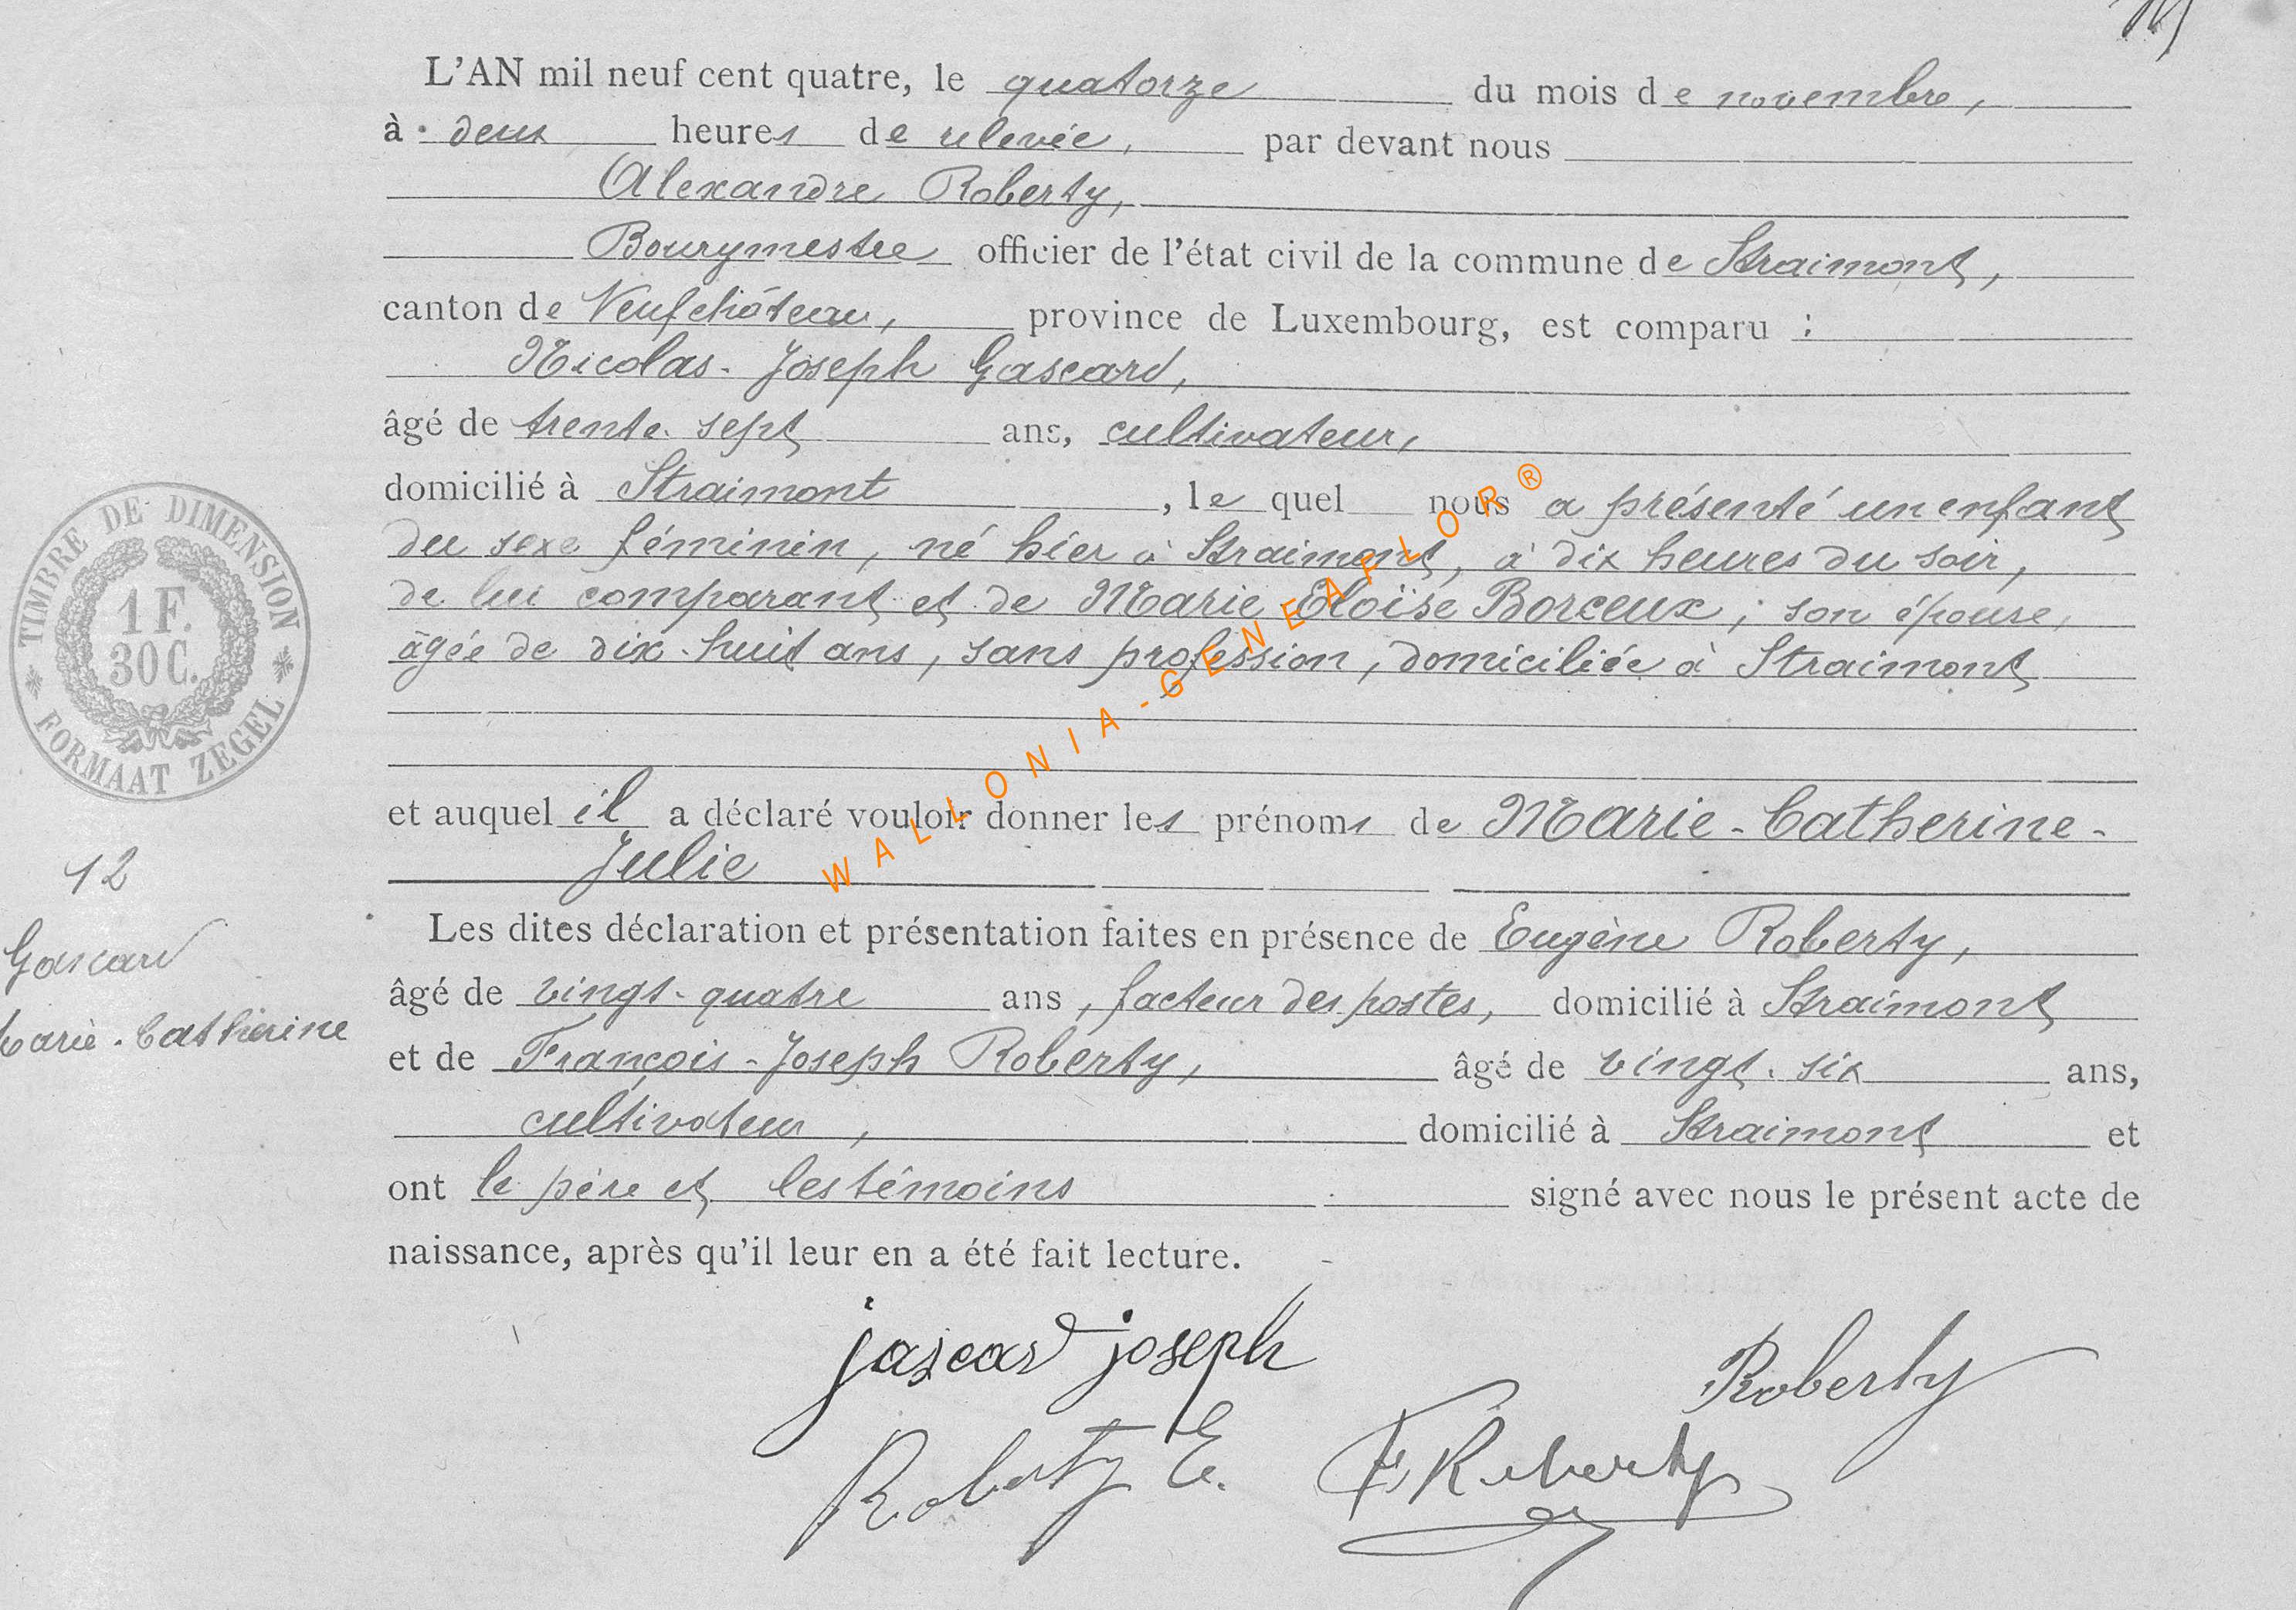 L'AN mil neuf cent quatre, le quatorze du mois de novembre,
à deux heures de relevée, par devant nous
Alexandre Roberty,
Bourgmestre officier de l'état civil de la commune de Straimont,
canton de Neufchâteau, province de Luxembourg, est comparu :
Nicolas-Joseph Gascard,
âgé de trente-sept ans, cultivateur,
domicilié à Straimont, lequel nous a présenté un enfant
du sexe féminin, né hier à Straimont, à dix heures du soir,
de lui comparant et de Marie-Eloïse Borceux, son épouse,
âgée de dix-huit ans, sans profession, domiciliée à Straimont
TIMBRE DE DIMENSION
1 F.
30 C.
FORMAAT ZEGEL
WALLONIA-GENEAFLOR®
et auquel il a déclaré vouloir donner les prénoms de Marie-Catherine-
Julie
12
Gascard
Marie-Catherine
Les dites déclaration et présentation faites en présence de Eugène Roberty,
âgé de vingt-quatre ans, facteur des postes, domicilié à Straimont
et de François-Joseph Roberty, âgé de vingt-six ans,
cultivateur, domicilié à Straimont et
ont le père et les témoins signé avec nous le présent acte de
naissance, après qu'il leur en a été fait lecture.
jascard joseph
Roberty
Roberty E.
F Roberty